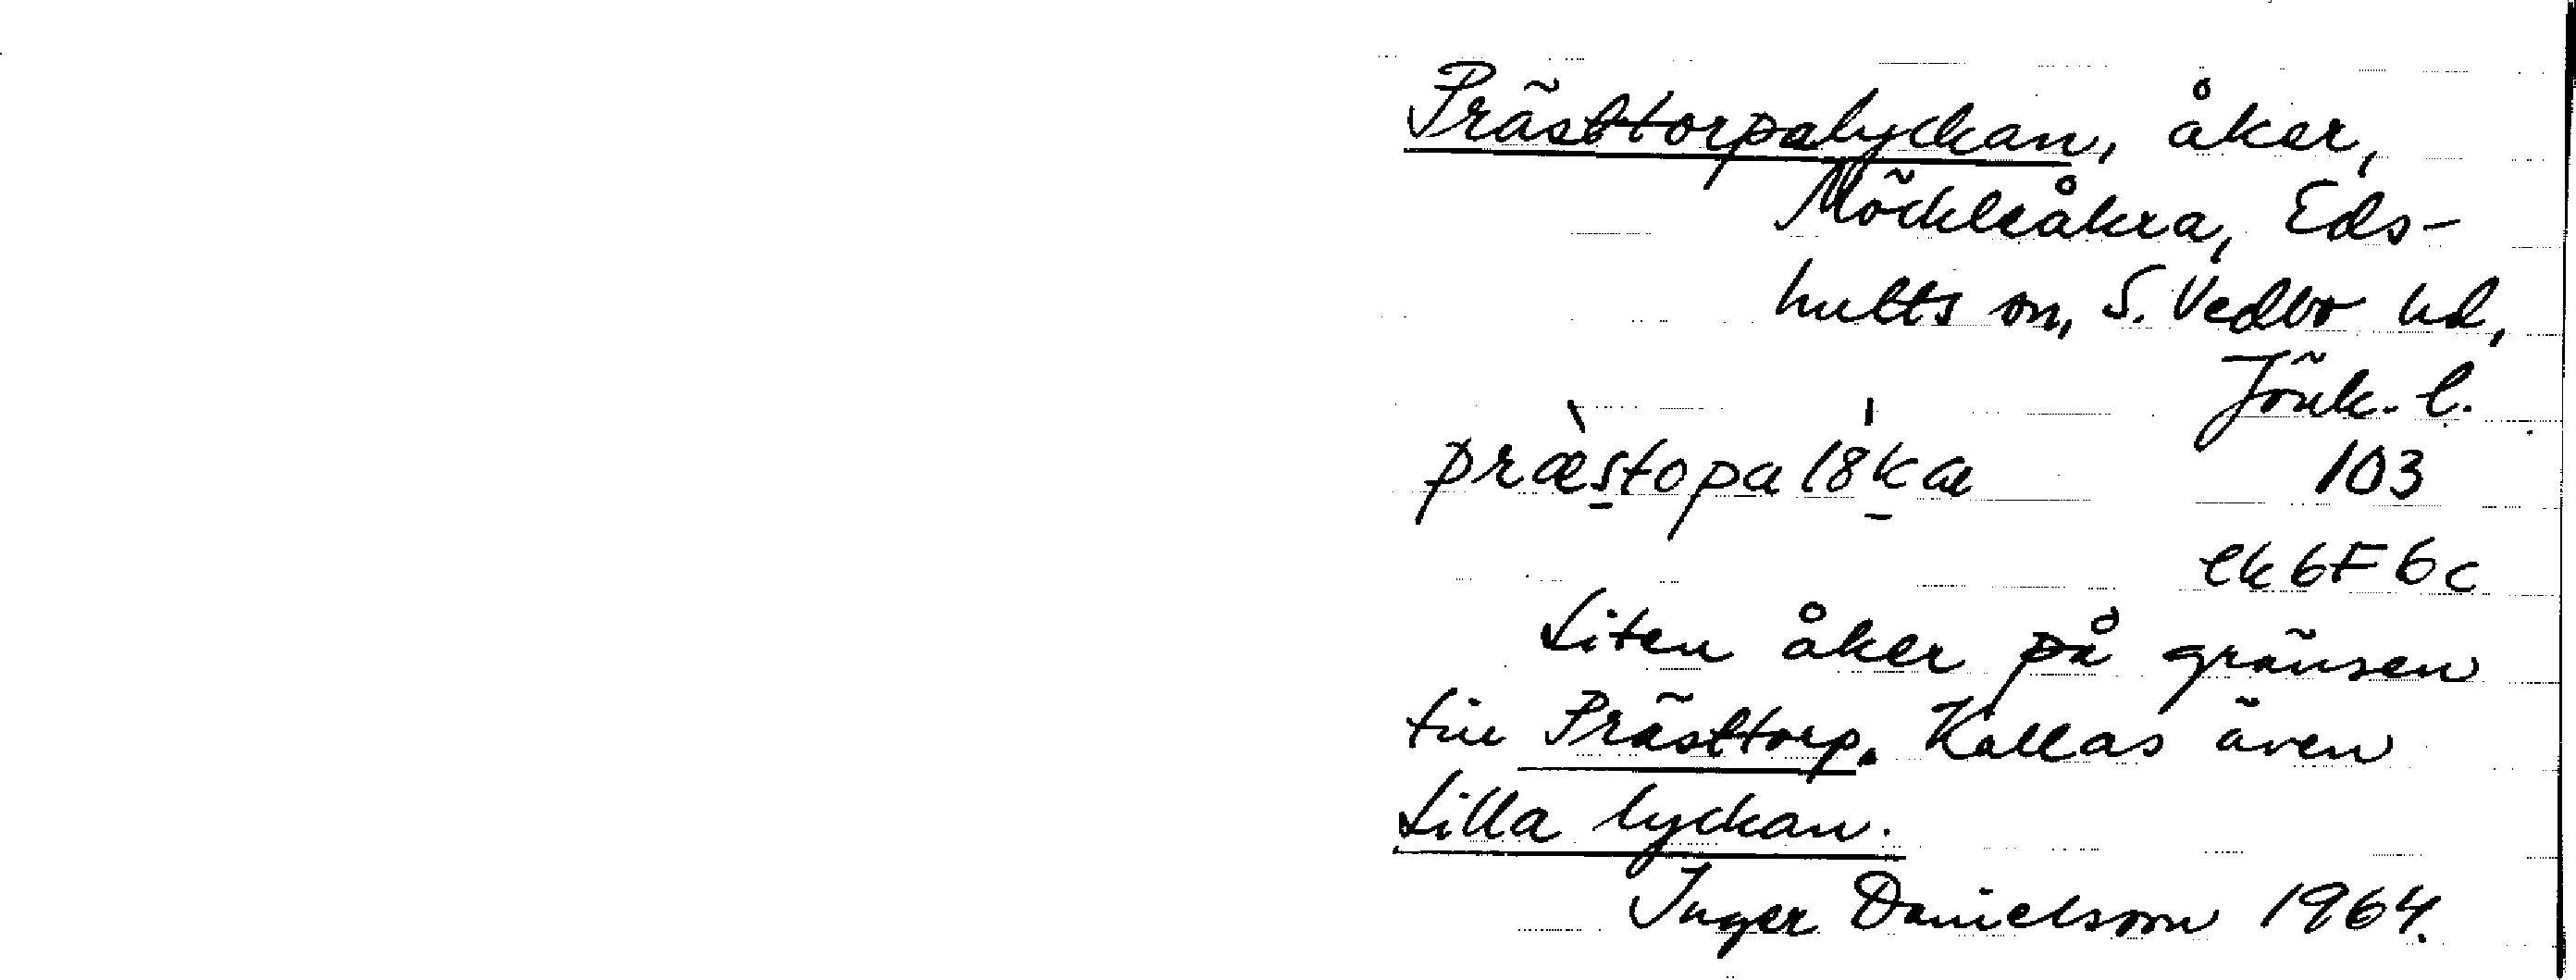 Prästtorpalyckan, åker,
Möckleåkra, Eds-
hults sn, S. Vedbo hd,
Jönk. l.
præ̀stopal8̍kæ 103
ek 6F6c
Liten åker på gränsen
till Prästtorp. Kallas även
Lilla lyckan.
Inger Danielsson 1964.